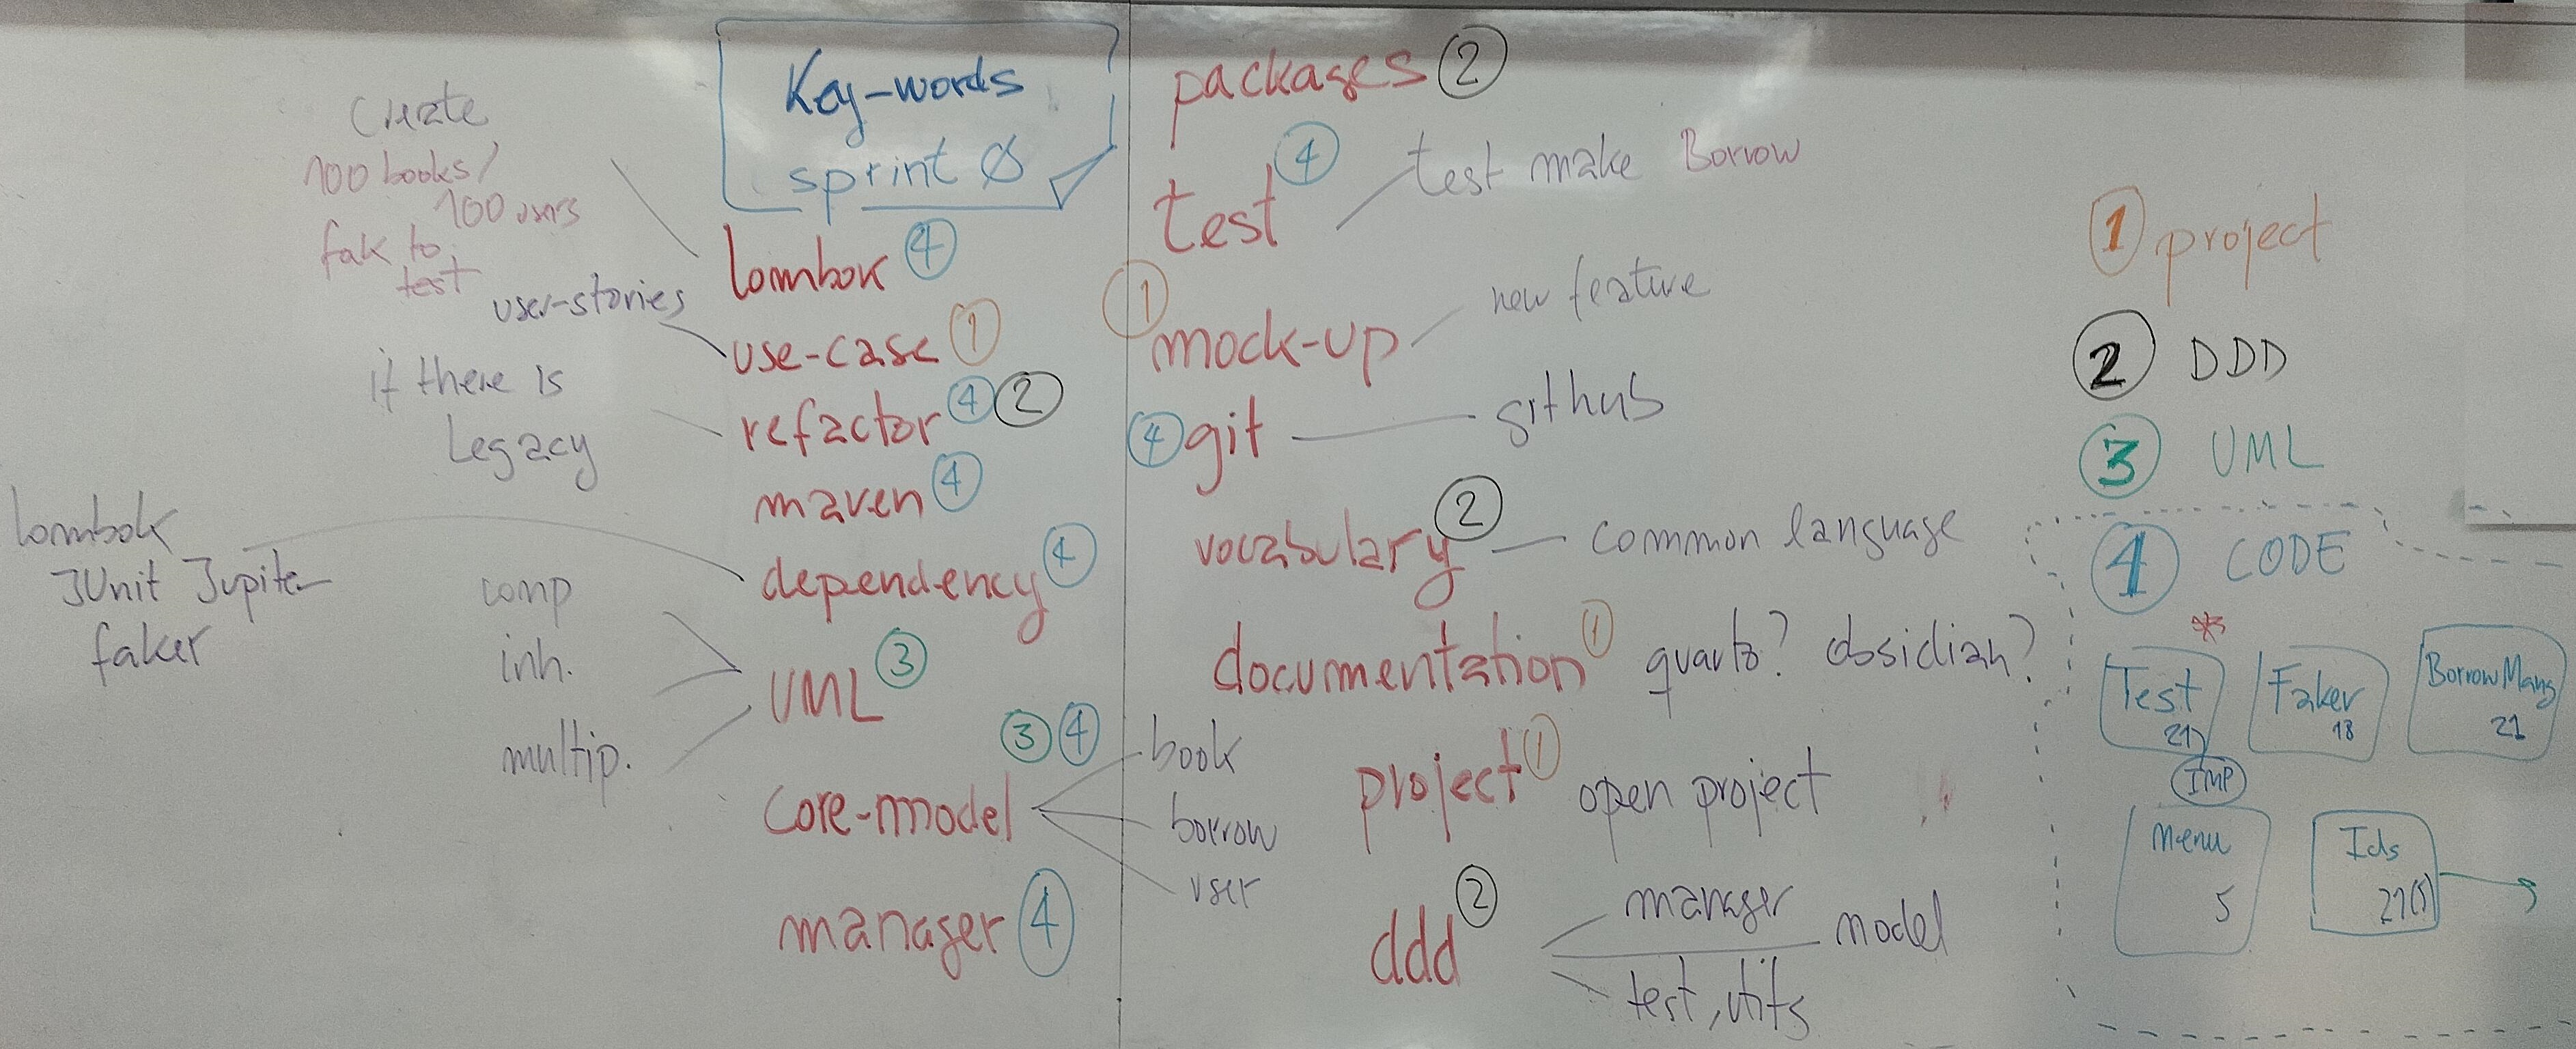 Key-words
sprint Ø
Create
100 books/
100 users
fak to
test
lombok 4
user-stories
use-case 1
if there is
Legacy
refactor 4 2
maven 4
lombok
JUnit Jupiter
faker
dependency 4
comp
inh.
multip.
UML 3
3 4
core-model
book
borrow
user
manager 4
packages 2
test 4
test make Borrow
1 mock-up
new feature
4 git
github
vocabulary 2
common language
documentation 1 quarto? obsidian?
project 1 open project
ddd 2
manager
model
test, utils
1 project
2 DDD
3 UML
4 CODE
*
Test
21
Faker
13
BorrowMang
21
IMP
Menu
5
Ids